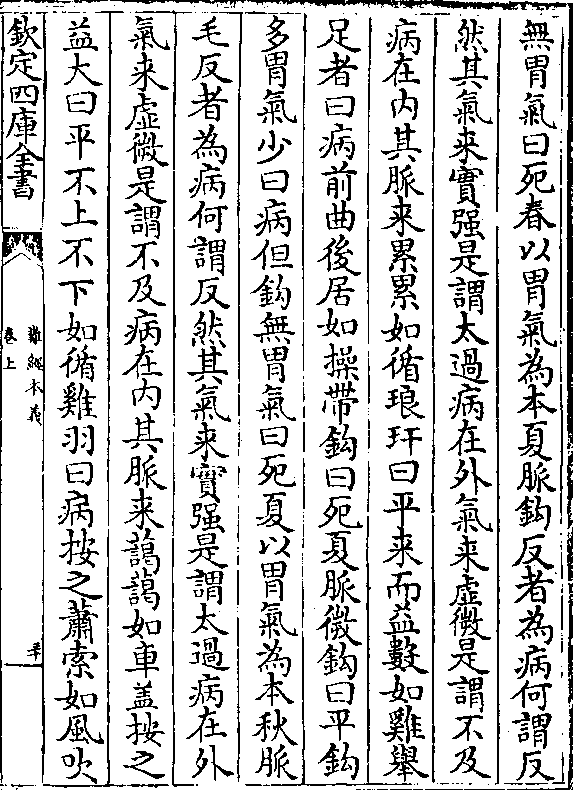 無胃氣曰死春以胃氣為本夏脈鈎反者為病何謂反
然其氣来實强是謂太過病在外氣来虚微是謂不及
病在内其脈来累累如循琅玕曰平来而益數如雞舉
足者曰病前曲後居如操帶鈎曰死夏脈微鈎曰平鈎
多胃氣少曰病但鈎無胃氣曰死夏以胃氣為本秋脈
毛反者為病何謂反然其氣来實强是謂太過病在外
氣来虚微是謂不及病在内其脈来藹藹如車蓋按之
益大曰平不上不下如循雞羽曰病按之蕭索如風吹
欽定四庫全書
難經本義
卷上